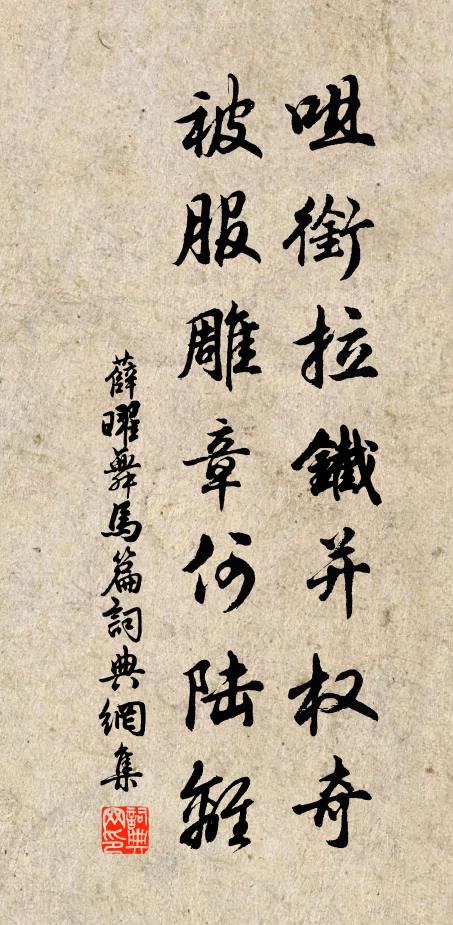 咀銜拉鐵并权奇
被服雕章何陆離
薛曜舞馬篇詞典網集
詞典网印